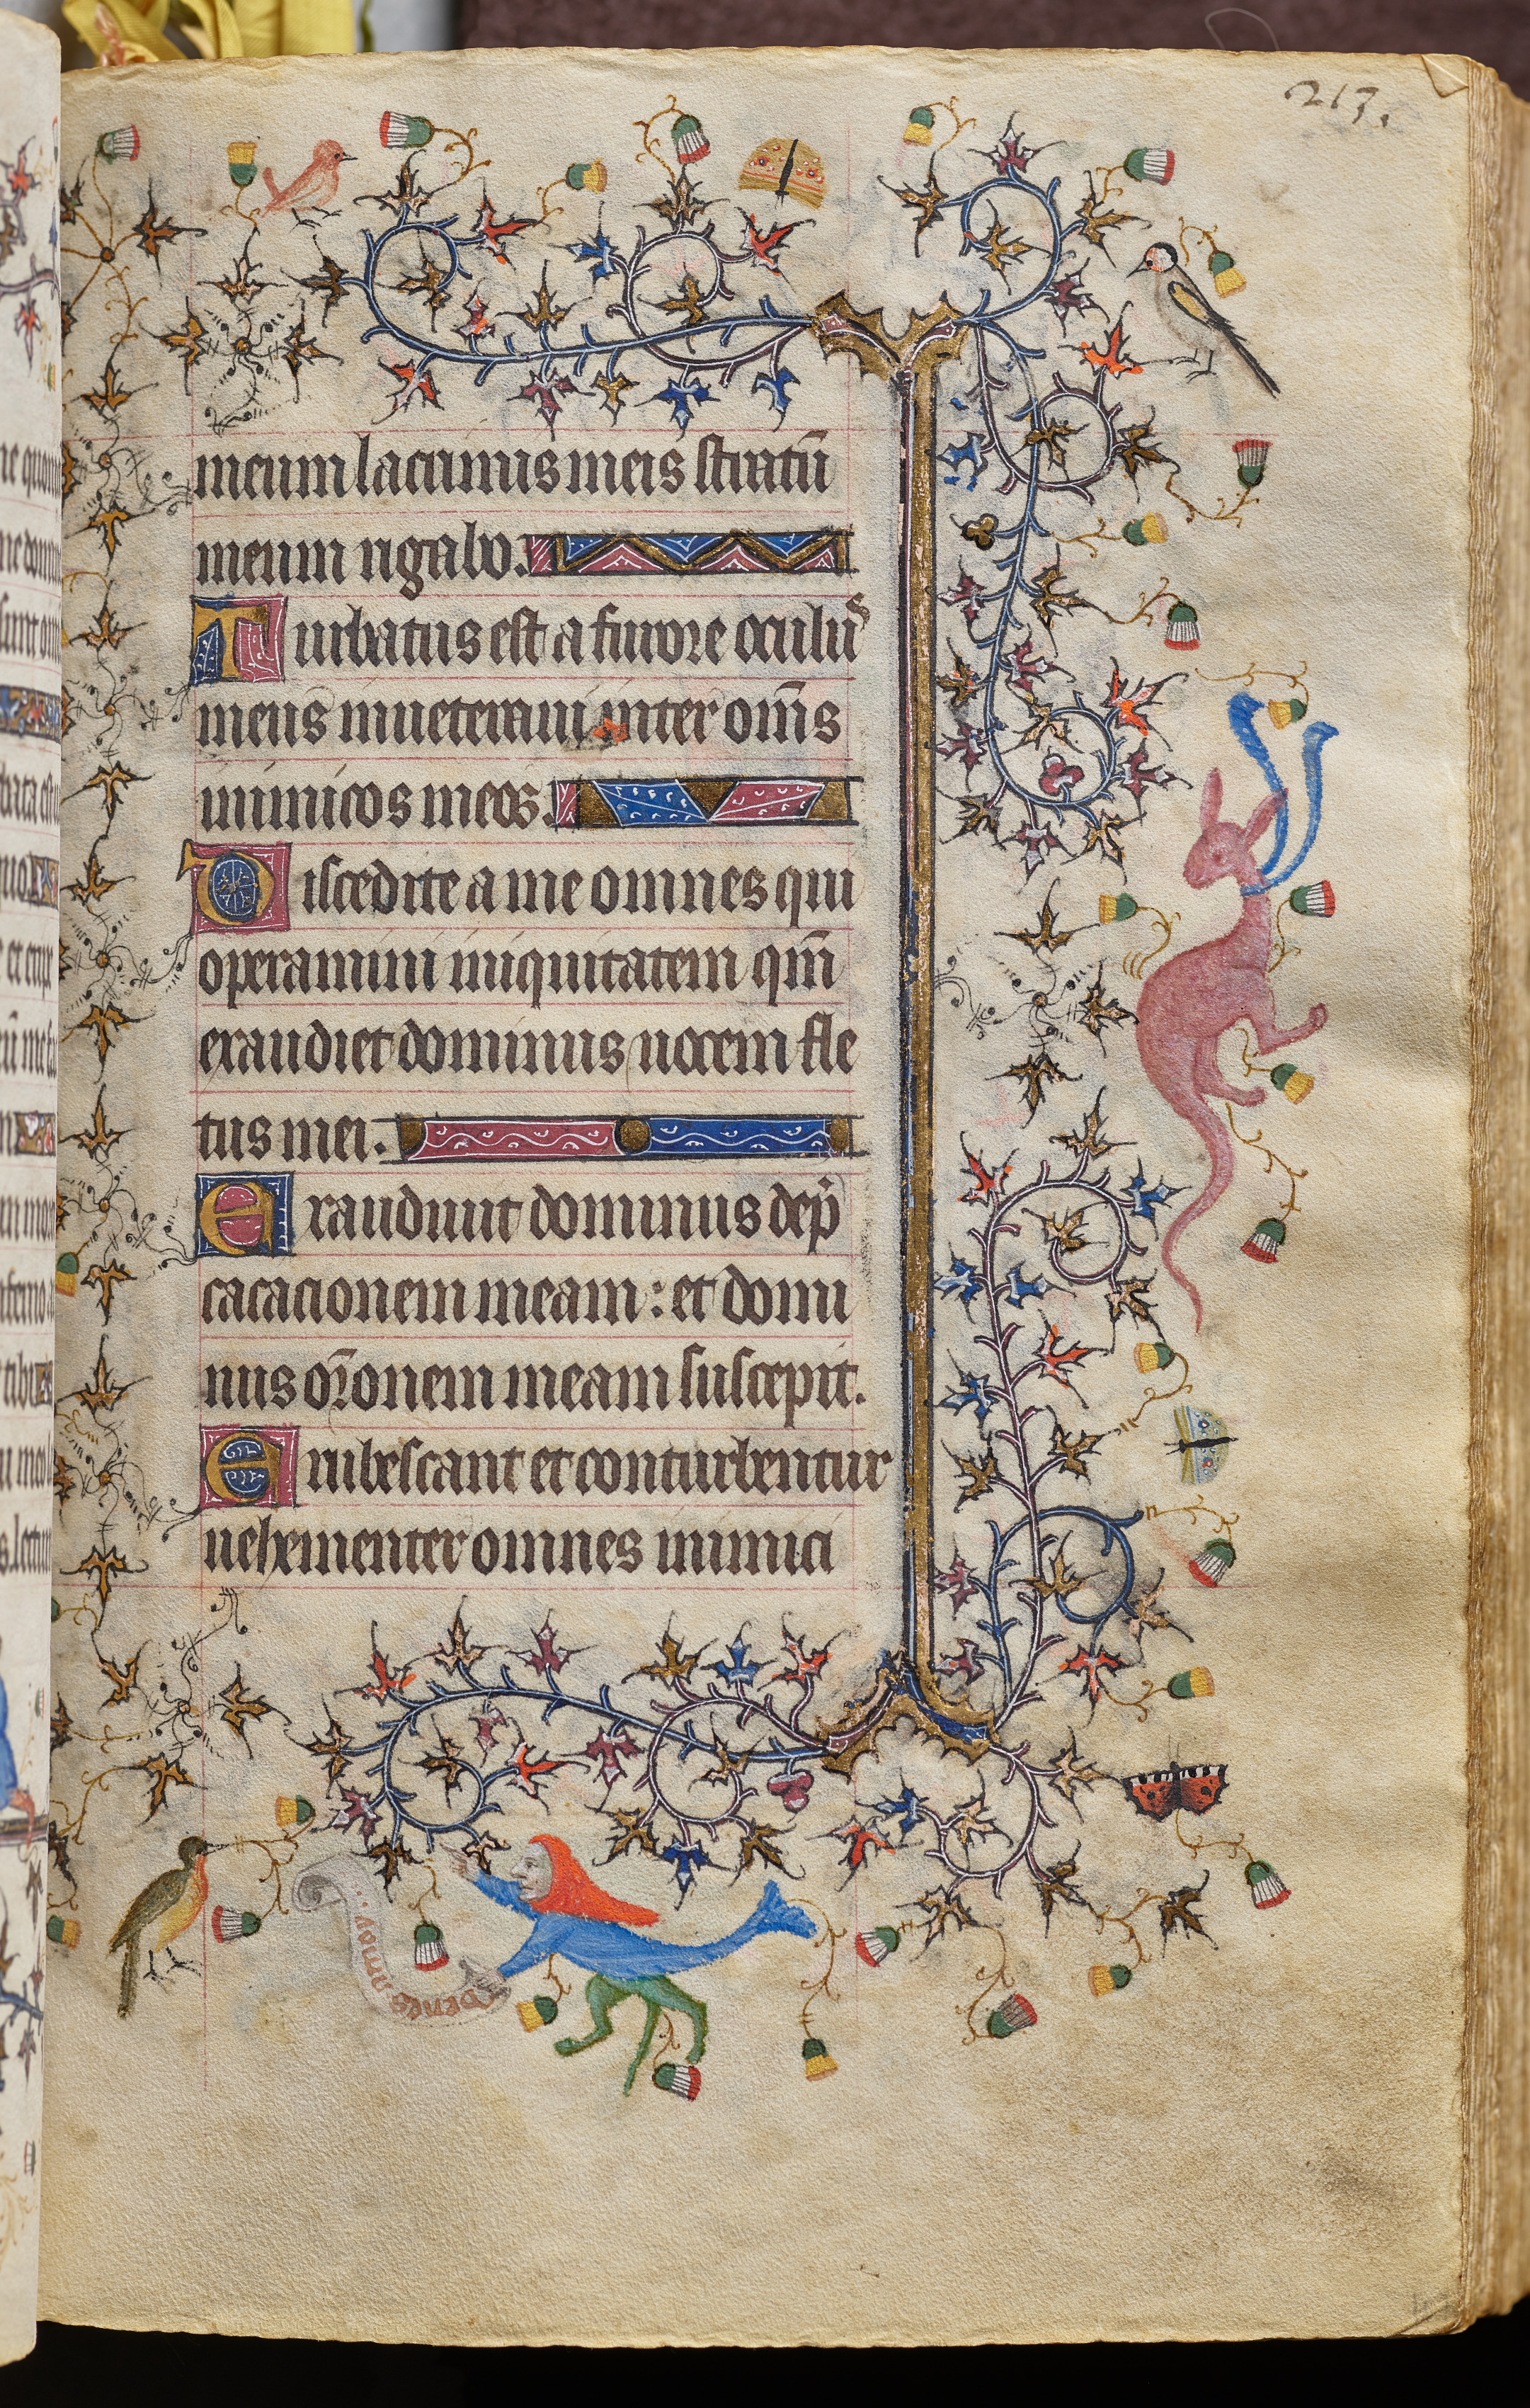 213.
meum lacrimis meis stratū
meum rigabo.
Turbatus est a furore oculus
meus inueteraui inter om̄s
inimicos meos.
Discedite a me omnes qui
operamini iniquitatem qm̄
exaudiet dominus uocem fle
tus mei.
Exaudiuit dominus dep̄
cacacionem meam: et domi
nus or̄onem meam suscepit.
Erubescant et conturbentur
uehementer omnes inimici
venes amow..